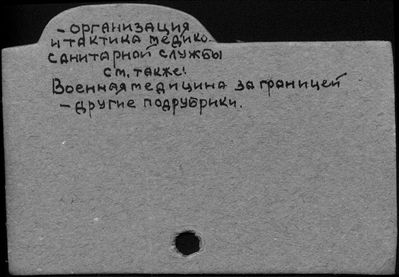 - ОРГАНИЗАЦИЯ
И ТАКТИКА МЕДИКО-
САНИТАРНОЙ СЛУЖБЫ
СМ. ТАКЖЕ:
ВОЕННАЯ МЕДИЦИНА ЗА ГРАНИЦЕЙ
- ДРУГИЕ ПОДРУБРИКИ.